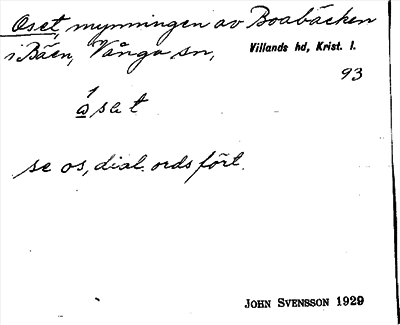 Oset, mynningen av Boabäcken
i Bäen, Vånga sn, Villands hd, Krist. l.
93
se os, dial. ordsfört.
JOHN SVENSSON 1929